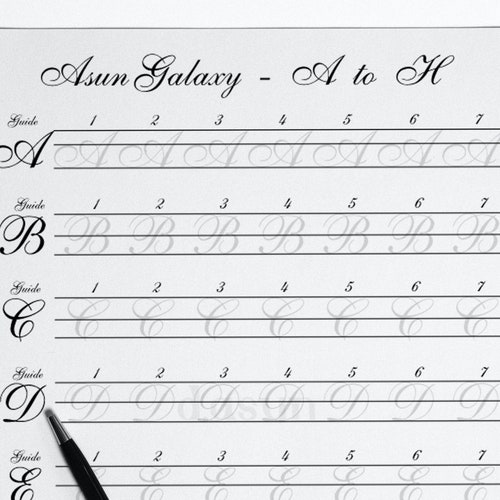 Asun Galaxy - A to H
Guide 1 2 3 4 5 6 7
A A A A A A A A
Guide 1 2 3 4 5 6 7
B B B B B B B B
Guide 1 2 3 4 5 6 7
C C C C C C C C
Guide 1 2 3 4 5 6 7
D D D D D D D D
Guide 1 2 3 4 5 6 7
E E E E E E E E